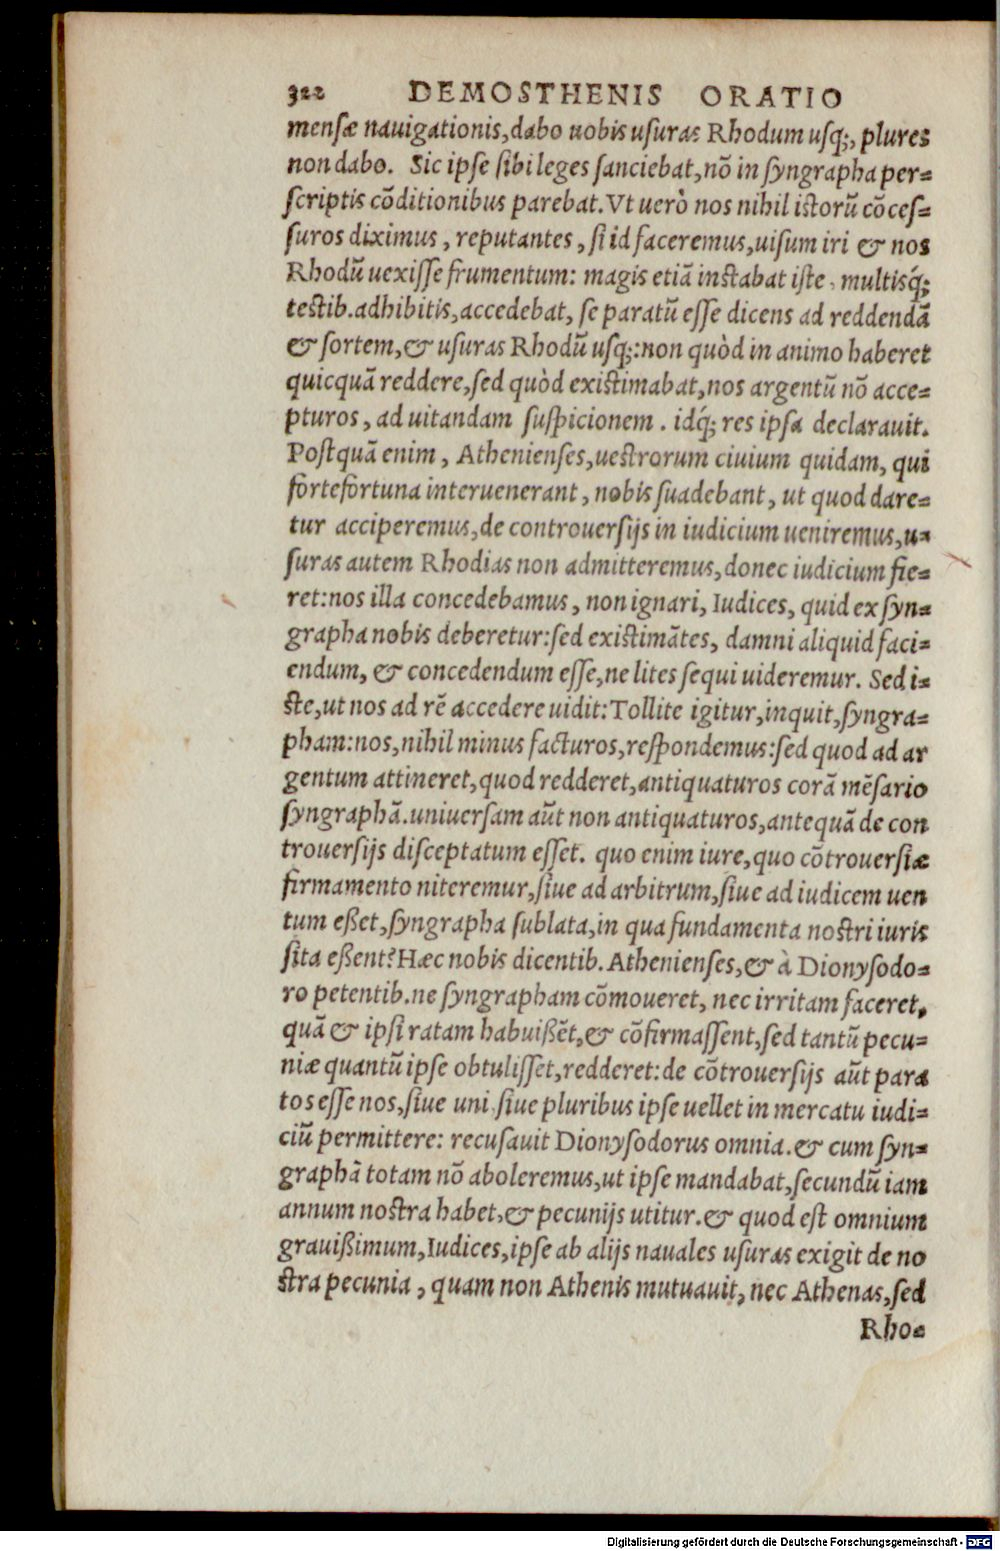 322 DEMOSTHENIS ORATIO
mensæ nauigationis, dabo uobis usuras Rhodum usq;, plures
non dabo. Sic ipse sibi leges sanciebat, nõ in syngrapha per=
scriptis cõditionibus parebat. Vt uerò nos nihil istorũ cõces=
suros diximus, reputantes, si id faceremus, uisum iri & nos
Rhodũ uexisse frumentum: magis etiã instabat iste, multisq́;
testib. adhibitis, accedebat, se paratũ esse dicens ad reddendã
& sortem, & usuras Rhodũ usq;: non quòd in animo haberet
quicquã reddere, sed quòd existimabat, nos argentũ nõ acce=
pturos, ad uitandam suspicionem. idq́; res ipsa declarauit.
Postquã enim, Athenienses, uestrorum ciuium quidam, qui
fortefortuna interuenerant, nobis suadebant, ut quod dare=
tur acciperemus, de controuersijs in iudicium ueniremus, u=
suras autem Rhodias non admitteremus, donec iudicium fie=
ret: nos illa concedebamus, non ignari, Iudices, quid ex syn=
grapha nobis deberetur: sed existimãtes, damni aliquid faci=
endum, & concedendum esse, ne lites sequi uideremur. Sed i=
ste, ut nos ad rẽ accedere uidit: Tollite igitur, inquit, syngra=
pham: nos, nihil minus facturos, respondemus: sed quod ad ar
gentum attineret, quod redderet, antiquaturos corã mẽsario
syngraphã. uniuersam aũt non antiquaturos, antequã de con
trouersijs disceptatum esset. quo enim iure, quo cõtrouersiæ
firmamento niteremur, siue ad arbitrum, siue ad iudicem uen
tum eßet, syngrapha sublata, in qua fundamenta nostri iuris
sita eßent? Hæc nobis dicentib. Athenienses, & à Dionysodo=
ro petentib. ne syngrapham cõmoueret, nec irritam faceret,
quã & ipsi ratam habuißẽt, & cõfirmassent, sed tantũ pecu=
niæ quantũ ipse obtulisset, redderet: de cõtrouersijs aũt para
tos esse nos, siue uni siue pluribus ipse uellet in mercatu iudi=
ciũ permittere: recusauit Dionysodorus omnia. & cum syn=
graphã totam nõ aboleremus, ut ipse mandabat, secundũ iam
annum nostra habet, & pecunijs utitur. & quod est omnium
grauißimum, Iudices, ipse ab alijs nauales usuras exigit de no
stra pecunia, quam non Athenis mutuauit, nec Athenas, sed
Rho=
Digitalisierung gefördert durch die Deutsche Forschungsgemeinschaft - DFG